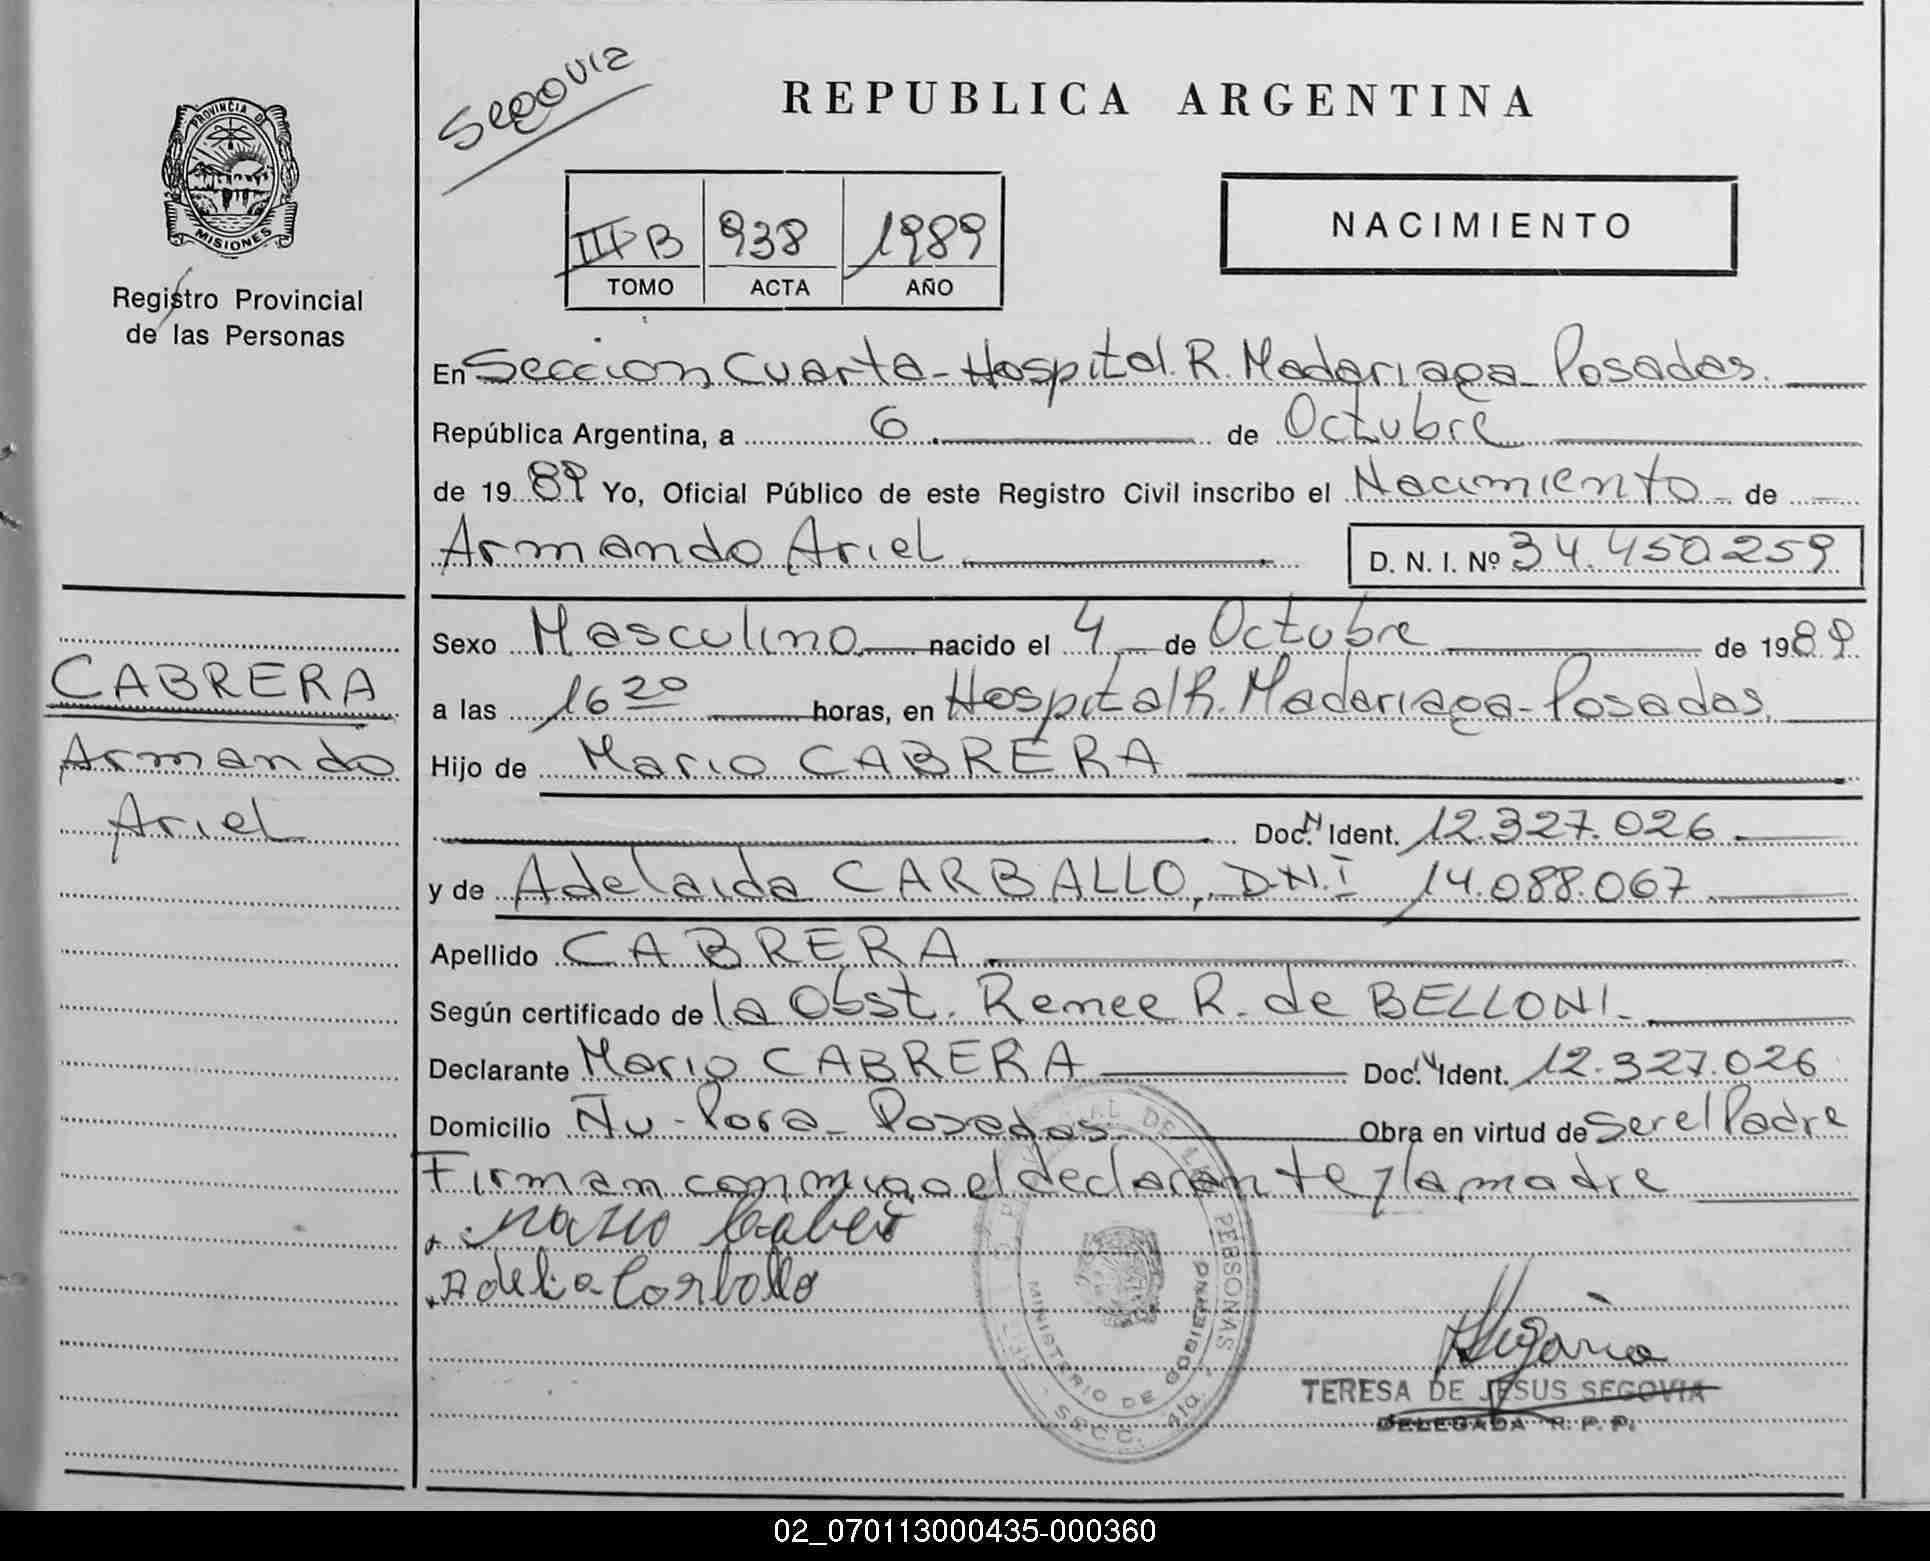 Segovia
REPUBLICA ARGENTINA
PROVINCIA D
MISIONES
Registro Provincial
de las Personas
III B 938 1989
TOMO ACTA AÑO
NACIMIENTO
En Seccion Cuarta - Hospital R. Madariaga - Posadas.
República Argentina, a 6 de Octubre
de 1989 Yo, Oficial Público de este Registro Civil inscribo el Nacimiento de
Armando Ariel D. N. I. Nº 34.450259
Sexo Masculino nacido el 4 de Octubre de 1989
a las 16 20 horas, en Hospital R. Madariaga - Posadas.
Hijo de Mario CABRERA
Doc. N Ident. 12.327.026
y de Adelaida CARBALLO, D.N.I 14.088.067
Apellido CABRERA
Según certificado de la Obst. Renee R. de BELLONI.
Declarante Mario CABRERA Doc. N Ident. 12.327.026
Domicilio Ñu - Pora - Posadas Obra en virtud de Ser el Padre
Firman conmigo el declarante y la madre
CABRERA
Armando
Ariel
Mario
Adelia Carballo
DE LAS PERSONAS
MINISTERIO DE GOBIERNO
SECC. 4ta.
TERESA DE JESUS SEGOVIA
DELEGADA R. P. P.
02_070113000435-000360